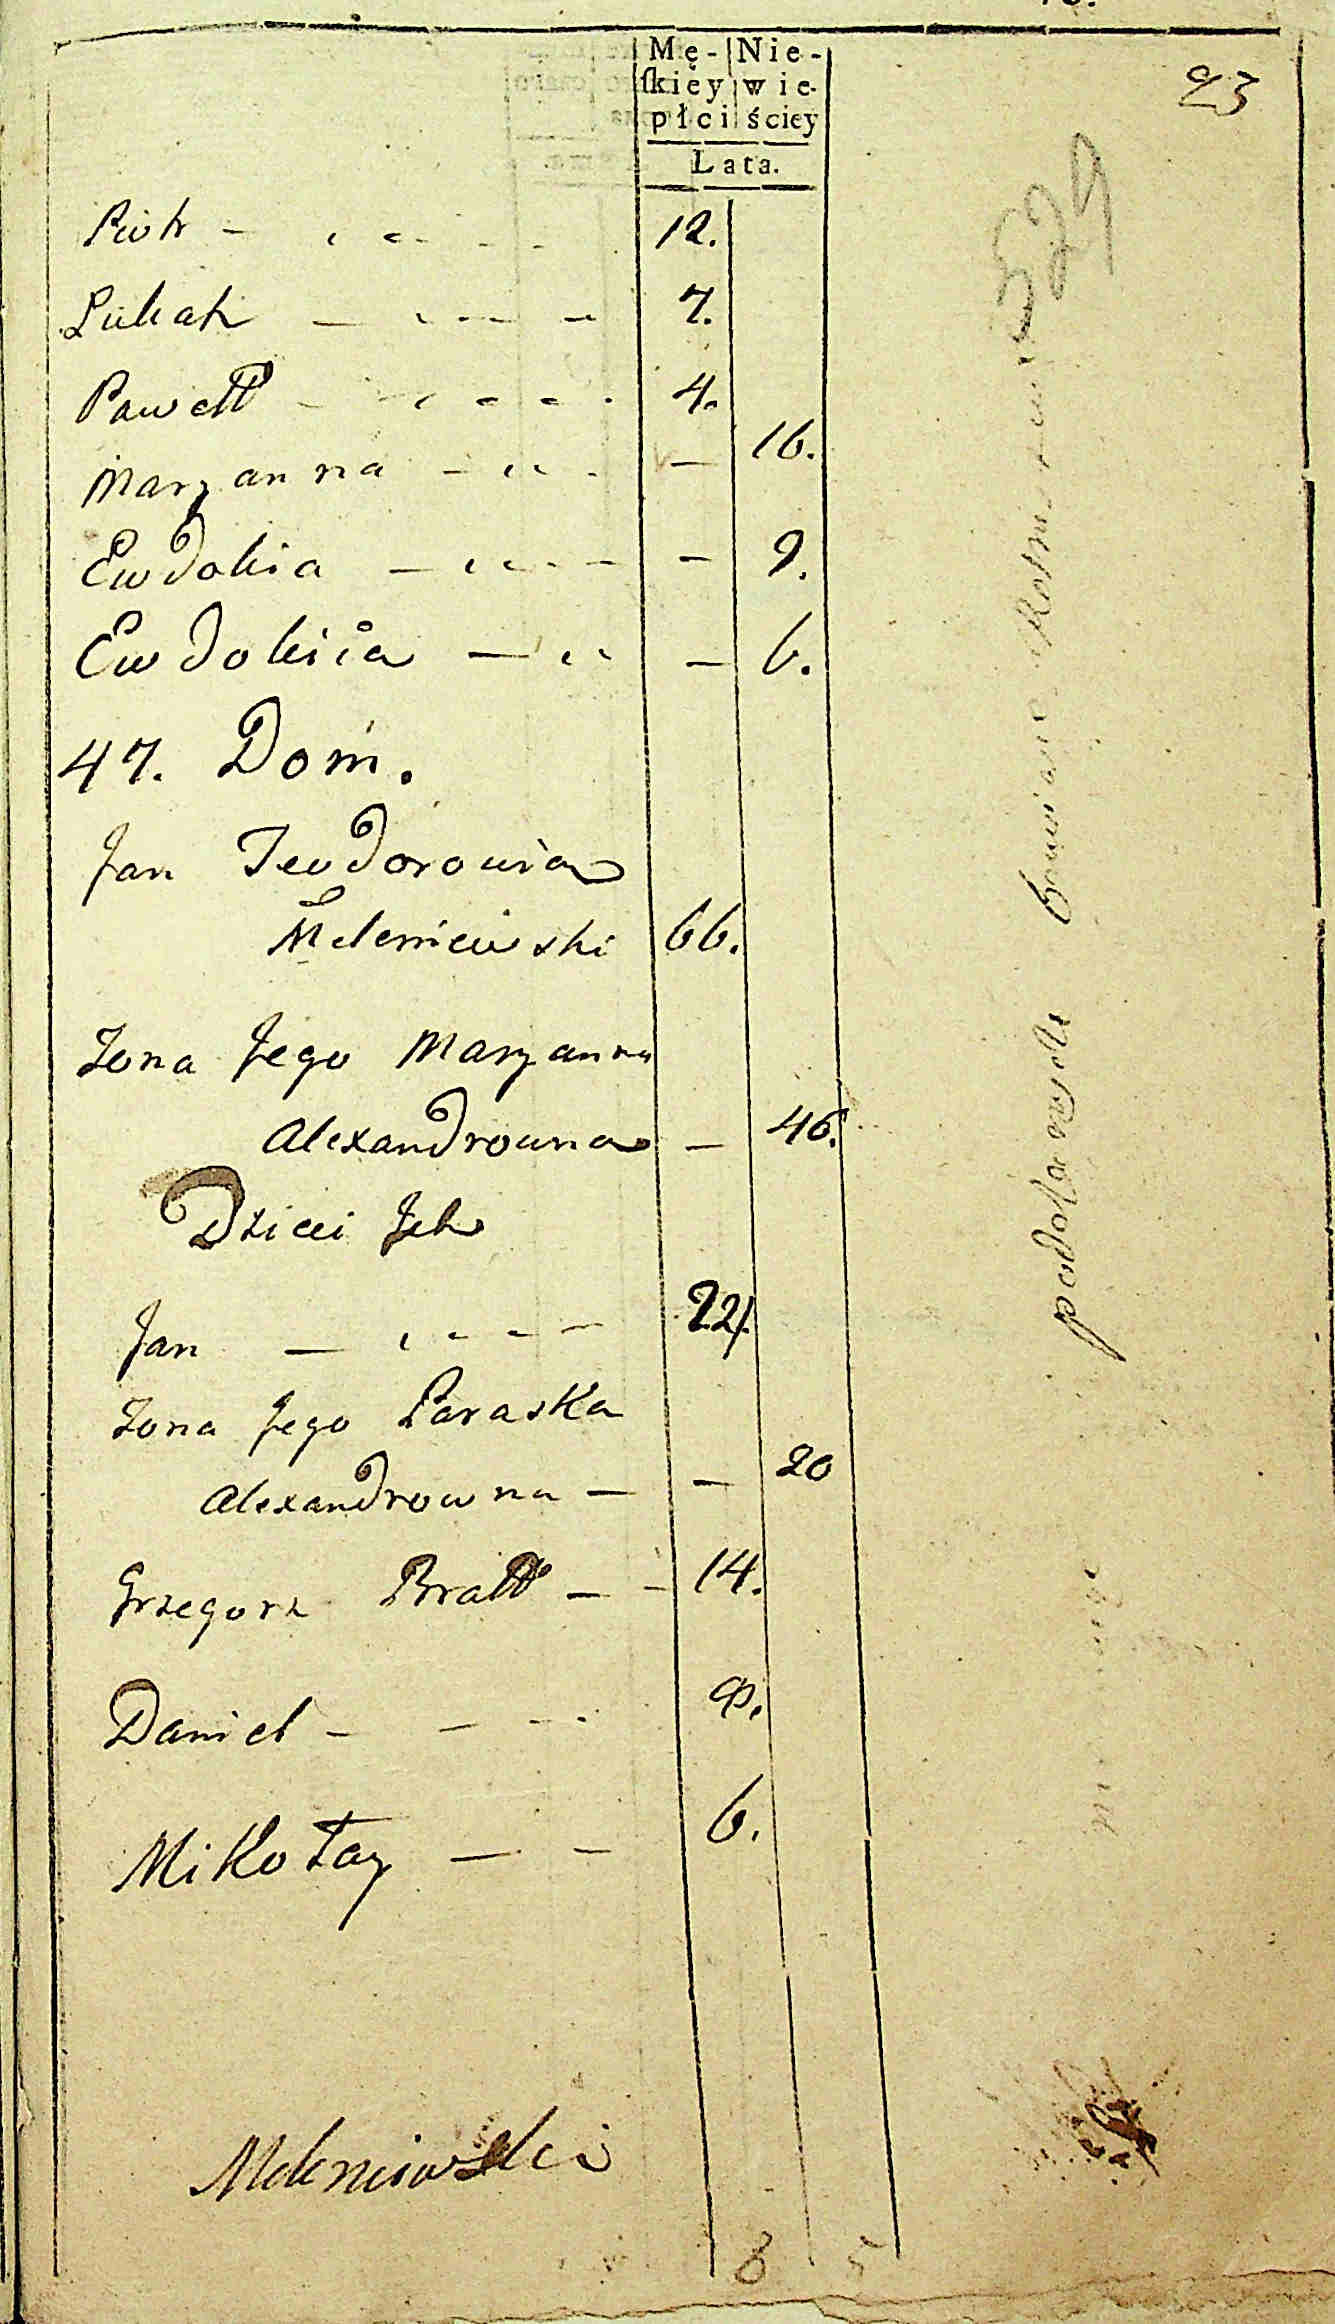 23
529
Mę- Nie-
ſkiey wie-
płci ściey
Lata.
Piotr - - - - - 12.
Łukasz - - - - - 7.
Paweł - - - - - 4.
Maryanna - - - - - 16.
Ewdokia - - - - - 9.
Ewdokiia - - - - 6.
47. Dom.
Jan Teodorowicz
Meleniewski 66.
Żona Jego Maryanna
Alexandrowna - 46.
Dzieci Ich
Jan - - - - - 22.
Żona Jego Paraska
Alexandrowna - - 20
Grzegorz Bratt - - 14.
Daniel - - - 9.
Mikołay - - 6.
Meleniewski
8 5